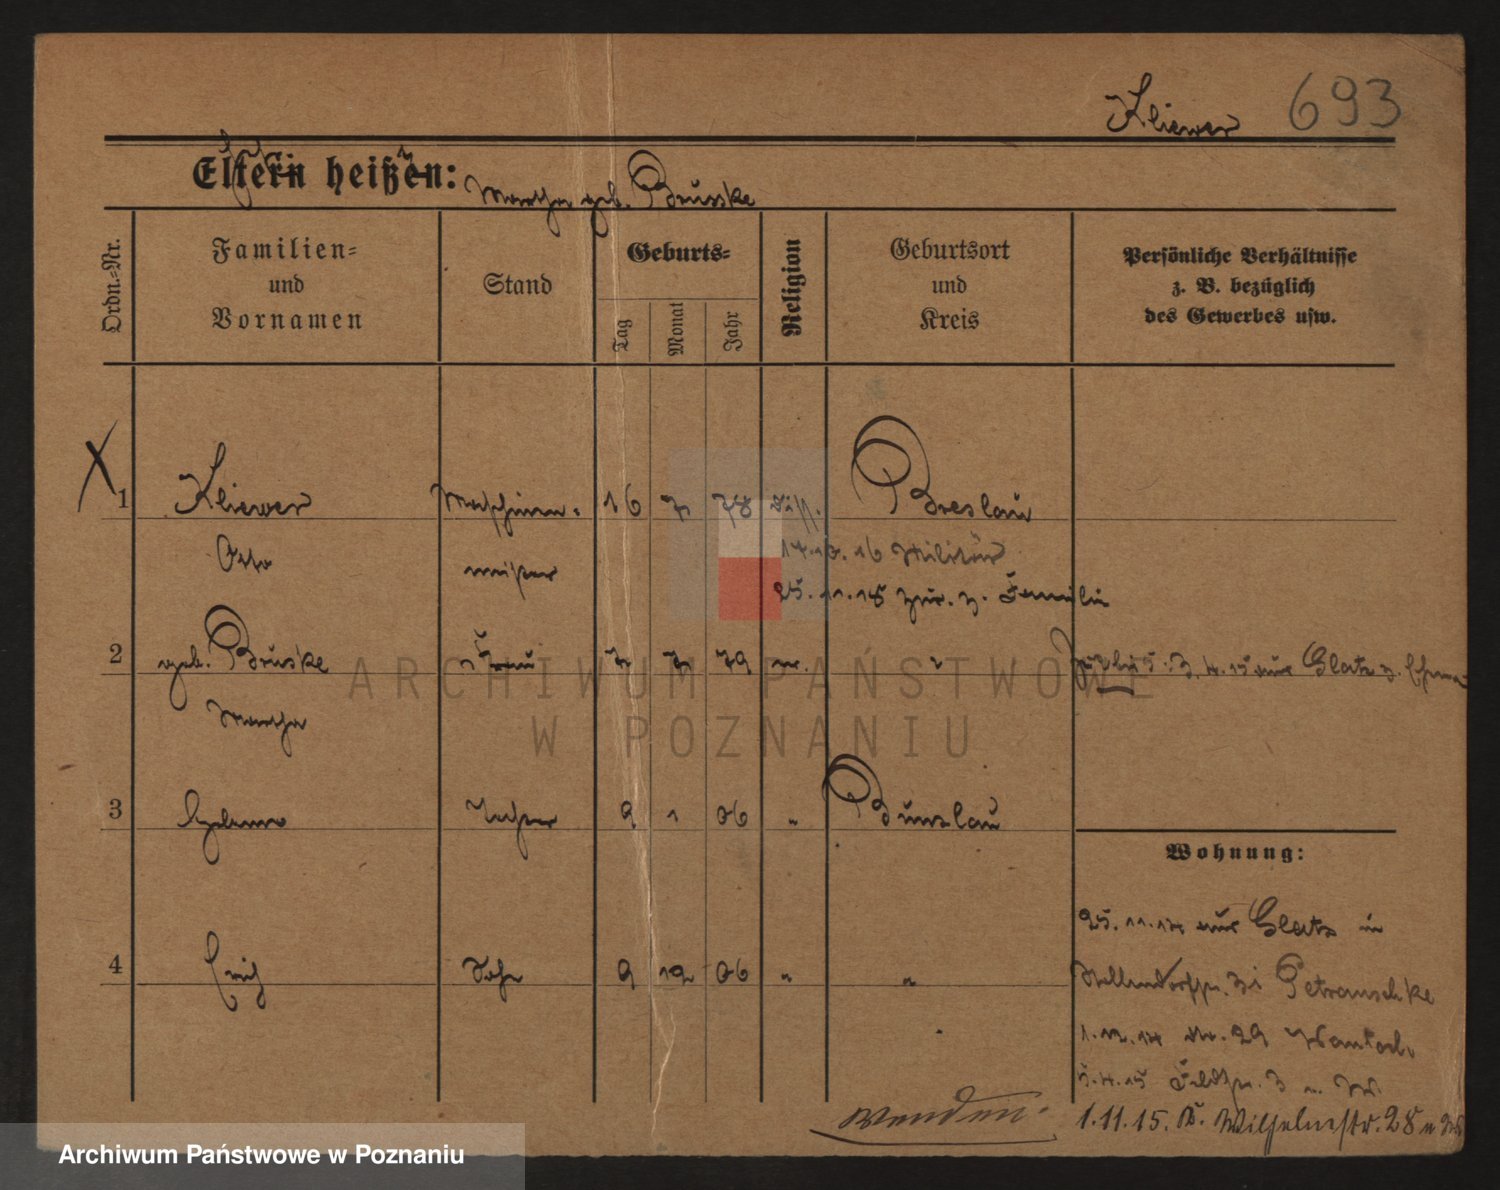 Kliewer 693
Eltern heißen:
Martha geb. Bruske
Ordn.=Nr.
Familien=
und
Vornamen
Stand
Geburts=
Tag
Monat
Jahr
Religion
Geburtsort
und
Kreis
Persönliche Verhältnisse
z. B. bezüglich
des Gewerbes usw.
1 Kliewer Maschinen- 16 7 78 Diss. Breslau
Otto 14.10.16 Militär
25.11.18 zur. z. Familie
2 geb. Bruske Frau 7 7 79 " 3.4.15 aus Glatz z.
Martha
3 Tochter 9 1 06 " Bunzlau
Wohnung:
25.11.14 aus Glatz in
4 Erich Sohn 9 12 06 " "
Petrauschke
1.12.14 Nr. 29
5.4.15 Feldstr. 3
wenden.
1.11.15. Wilhelmstr. 28
ARCHIWUM PAŃSTWOWE
W POZNANIU
Archiwum Państwowe w Poznaniu